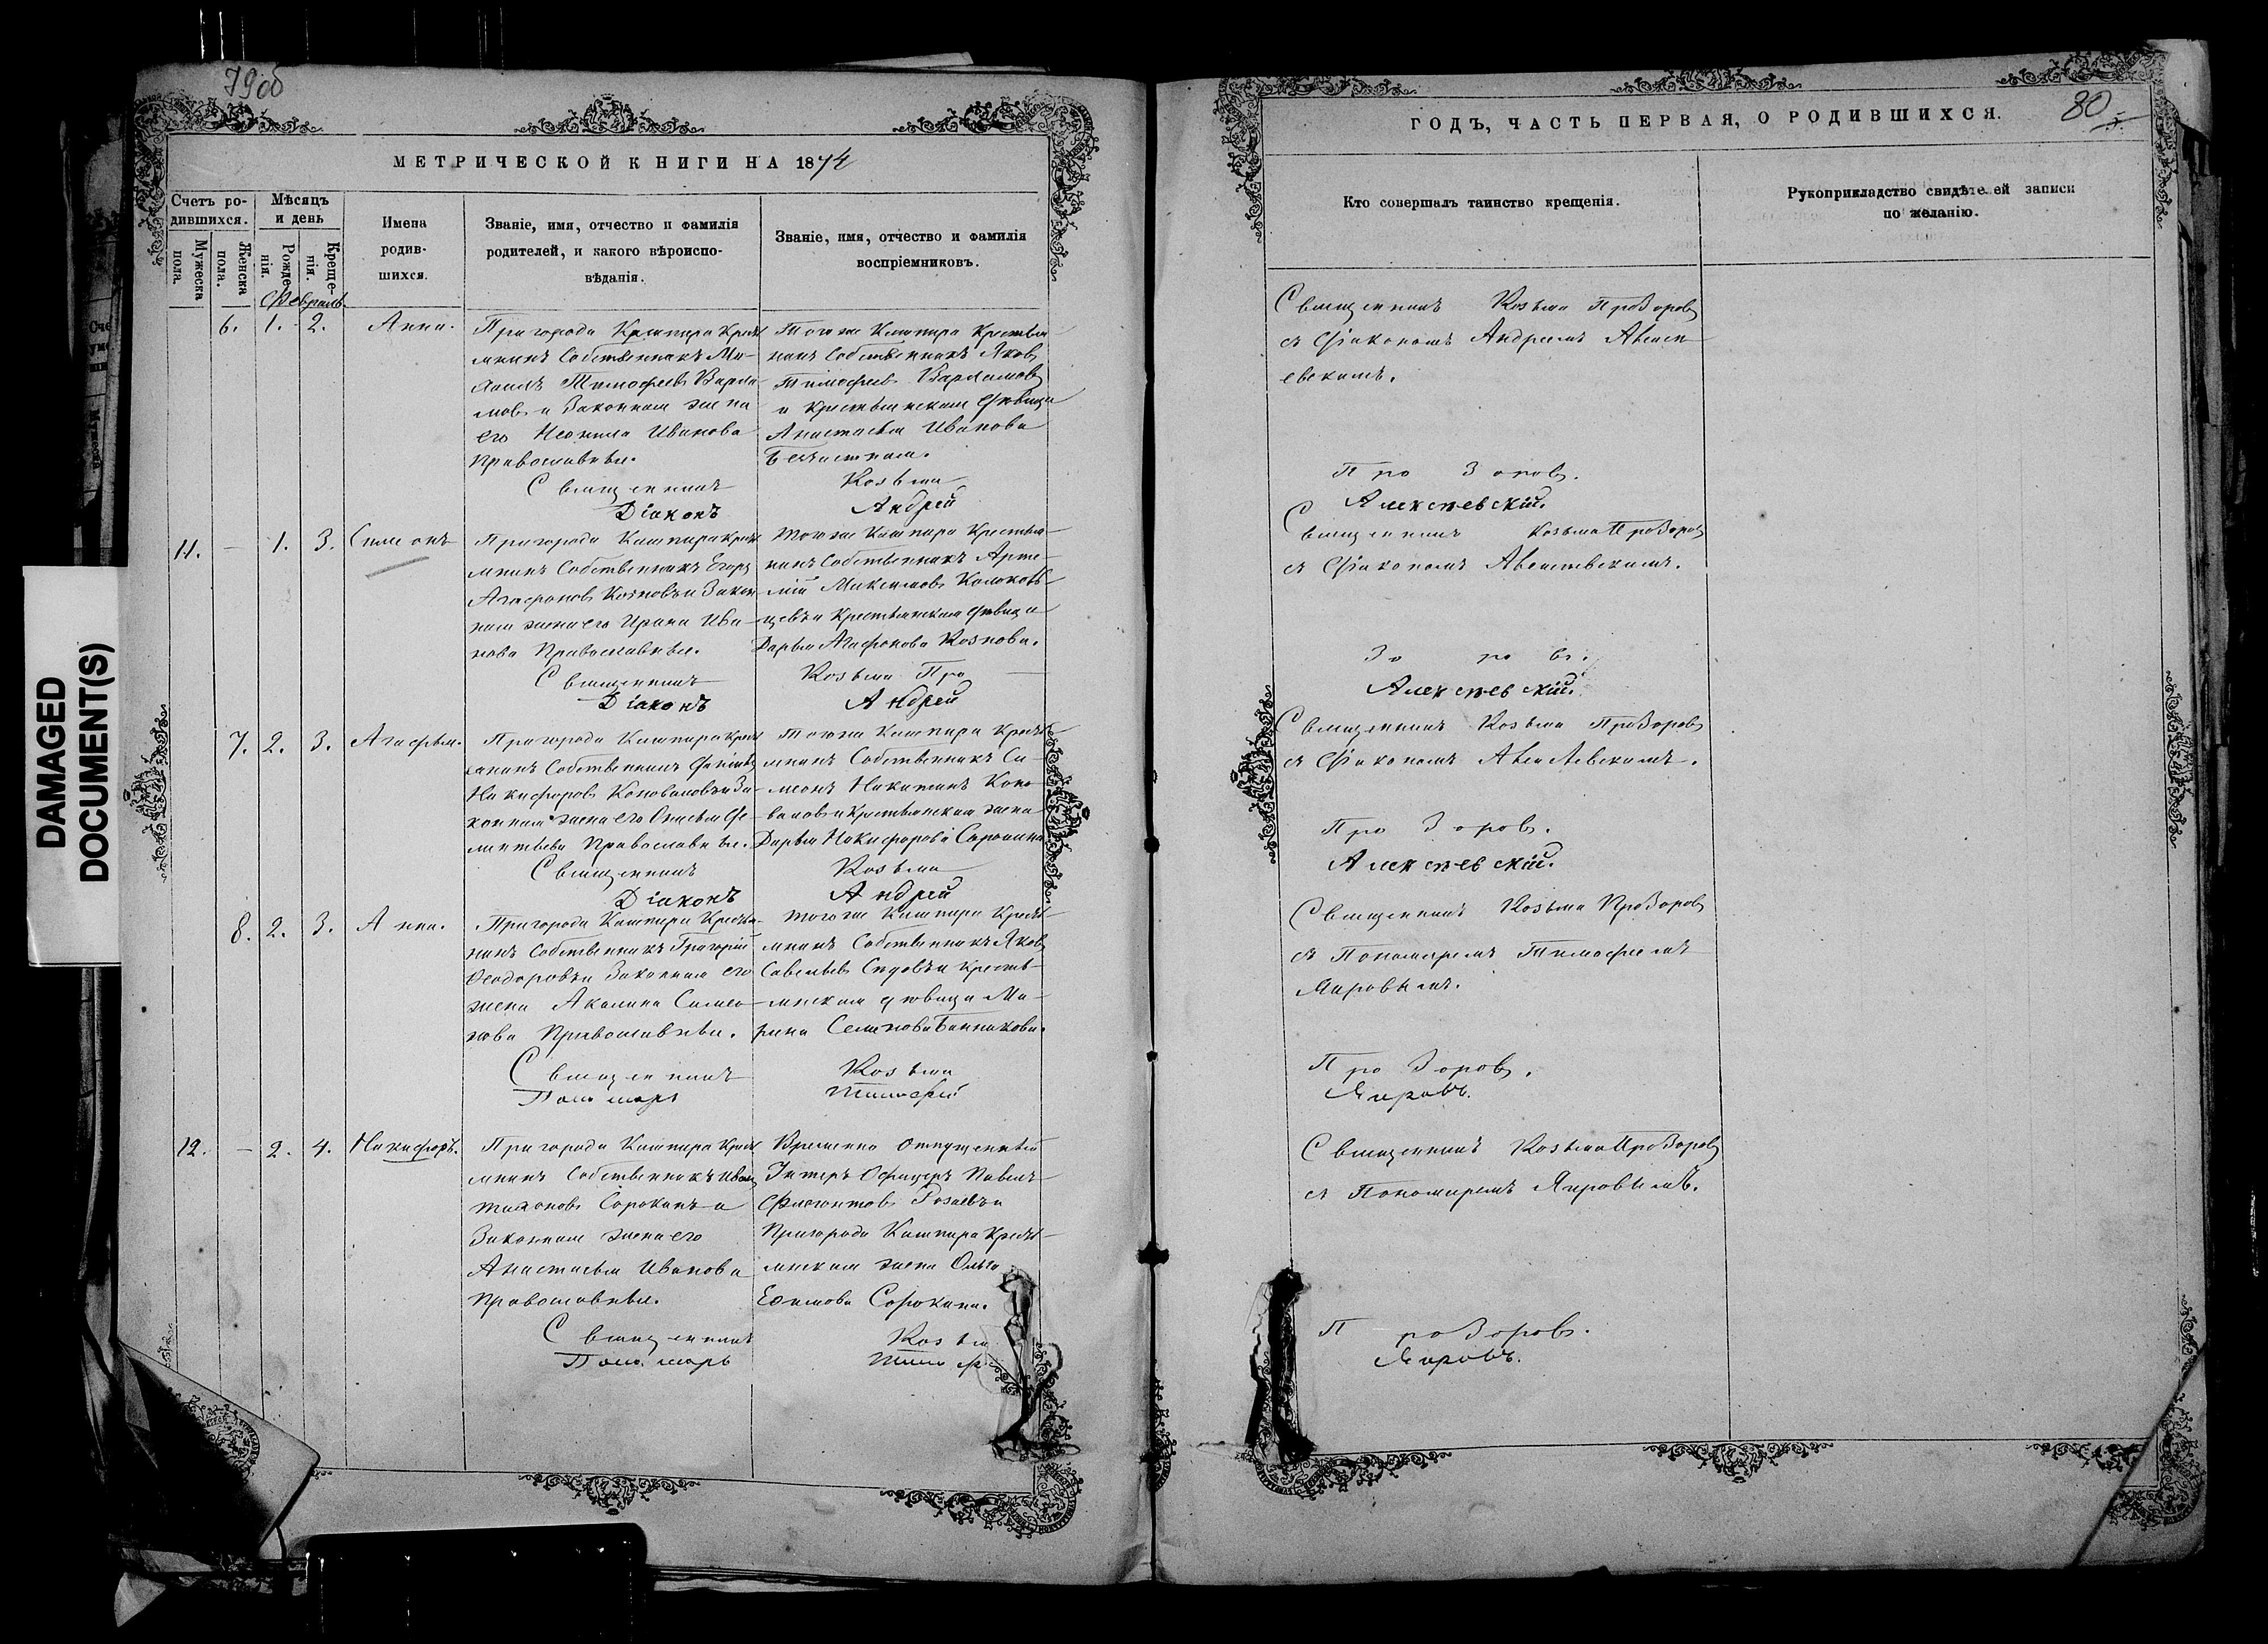 79об
МЕТРИЧЕСКОЙ КНИГИ НА 1874
Счетъ ро-
дившихся.
Мужеска пола.
Женска пола.
Мѣсяцъ
и день
Рожде-
нія.
Креще-
нія.
Февраль.
Имена
родив-
шихся.
Званіе, имя, отчество и фамилія
родителей, и какого вѣроиспо-
вѣданія.
Званіе, имя, отчество и фамилія
воспріемниковъ.
6. 1. 2. Анна.
Пригорода Кашпира Кресть
янинъ Собственникъ Ми-
хаилъ Тимофеевъ Варла-
мовъ и Законная жена
его Неонила Иванова
Православные.
Тогоже Кашпира Крестья
нинъ Собственникъ Яковъ
Тимофеевъ Варламовъ
и крестьянская дѣвица
Анастасья Иванова
Священникъ Козьма
Діаконъ Андрей
11. - 1. 3. Симеонъ
Пригорода Кашпира Кресть
янинъ Собственникъ Егоръ
Агафоновъ Козновъ и Закон
ная жена его Ирина Ива-
нова Православные.
Тогоже Кашпира Крестья-
нинъ Собственникъ Арте-
мій Максимовъ Колоколь-
цевъ и Крестьянская дѣвица
Дарья Агафонова Кознова.
Священникъ Козьма Про
Діаконъ Андрей
7. 2. 3. Агафья.
Пригорода Кашпира Кресть
янинъ Собственникъ
Никифоровъ Коноваловъ и За-
конная жена его
Православные.
Тогоже Кашпира Кресть
янинъ Собственникъ Си-
меонъ Никитинъ Коно-
валовъ и Крестьянская жена
Дарья Никифорова Сорокина
Священникъ Козьма
Діаконъ Андрей
8. 2. 3. Анна.
Пригорода Кашпира Крестья-
нинъ Собственникъ Григорій
Ѳеодоровъ и Законная его
жена Акилина Симео-
нова Православные.
Тогоже Кашпира Кресть-
янинъ Собственникъ Яковъ
Савельевъ Седовъ и Кресть-
янская дѣвица Ма-
рина Семенова Банникова.
Священникъ Козьма
Пономарь Тимофей
12. - 2. 4. Никифоръ.
Пригорода Кашпира Кресть
янинъ Собственникъ Иванъ
Тихоновъ Сорокинъ и
Законная жена его
Анастасья Иванова
Православные.
Временно Отпущенный
Унтеръ Офицеръ Павелъ
Пригорода Кашпира Кресть-
янская жена Ольга
Ефимова Сорокина.
Священникъ Козьм
Пономарь Тимоф
ГОДЪ, ЧАСТЬ ПЕРВАЯ, О РОДИВШИХСЯ.
80
Кто совершалъ таинство крещенія.
Рукоприкладство свидѣтелей записи
по желанію.
Священникъ Козьма Прозоровъ
съ Діакономъ Андреемъ Алексѣ
евскимъ.
Прозоровъ.
Алексѣевскій.
Священникъ Козьма Прозоровъ
съ Діакономъ Алексѣевскимъ.
зоровъ.
Алексѣевскій.
Священникъ Козьма Прозоровъ
съ Діакономъ Алексѣевскимъ.
Прозоровъ.
Алексѣевскій.
Священникъ Козьма Прозоровъ
съ Пономаремъ Тимофеемъ
Яировымъ.
Прозоровъ.
Яировъ.
Священникъ Козьма Прозоровъ
съ Пономаремъ Яировымъ.
Прозоровъ.
Яировъ.
DAMAGED
DOCUMENT(S)